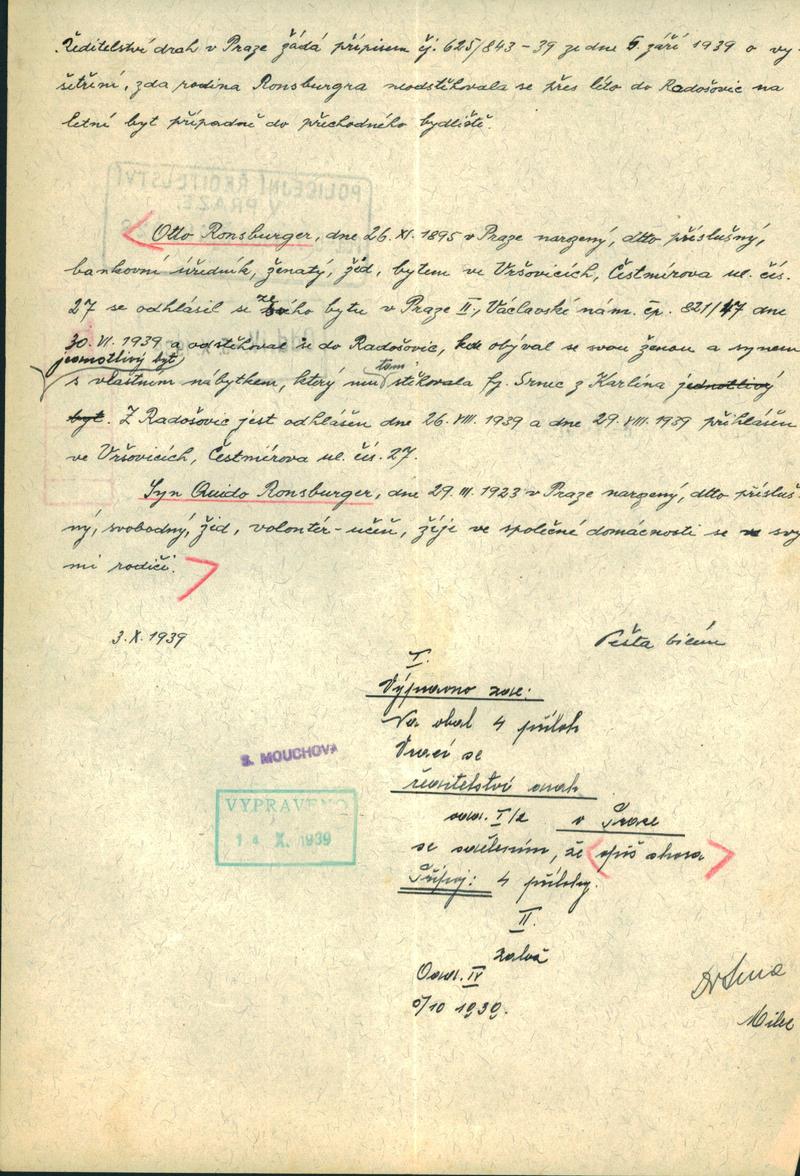 Ředitelství drah v Praze žádá přípisem čj. 625/843-39 ze dne 5. září 1939 o vy-
šetření, zda rodina Ronsburgra neodstěhovala se přes léto do Radošovic na
letní byt případně do přechodného bydliště.
POLICEJNÍ ŘEDITELSTVÍ
V PRAZE.
Otto Ronsburger, dne 26. XI. 1895 v Praze narozený, dtto příslušný,
bankovní úředník, ženatý, žid, bytem ve Vršovicích, Čestmírova ul. čís.
27 se odhlásil se ze bytu v Praze II., Václavské nám. čp. 821/47 dne
30. VI. 1939 a odstěhoval se do Radošovic, kde obýval se svou ženou a synem
jednotlivý byt
s vlastním nábytkem, který mu tam stěhovala fy. Srnec z Karlína jednotlivý
byt. Z Radošovic jest odhlášen dne 26. VIII. 1939 a dne 29. VIII. 1939 přihlášen
ve Vršovicích, Čestmírova ul. čís. 27.
Syn Quido Ronsburger, dne 29. III. 1923 v Praze narozený, dtto přísluš-
ný, svobodný, žid, volontér-učeň, žije ve společné domácnosti se svý-
mi rodiči.
3. X. 1939
I.
Na obal 4 příloh
Vrací se
ředitelství drah
odd. I/2 v Praze
se sdělením, že opis shora
Připoj: 4 přílohy.
S. MOUCHOVÁ
VYPRAVENO
14 X. 1939
II.
Odd. IV
1939.